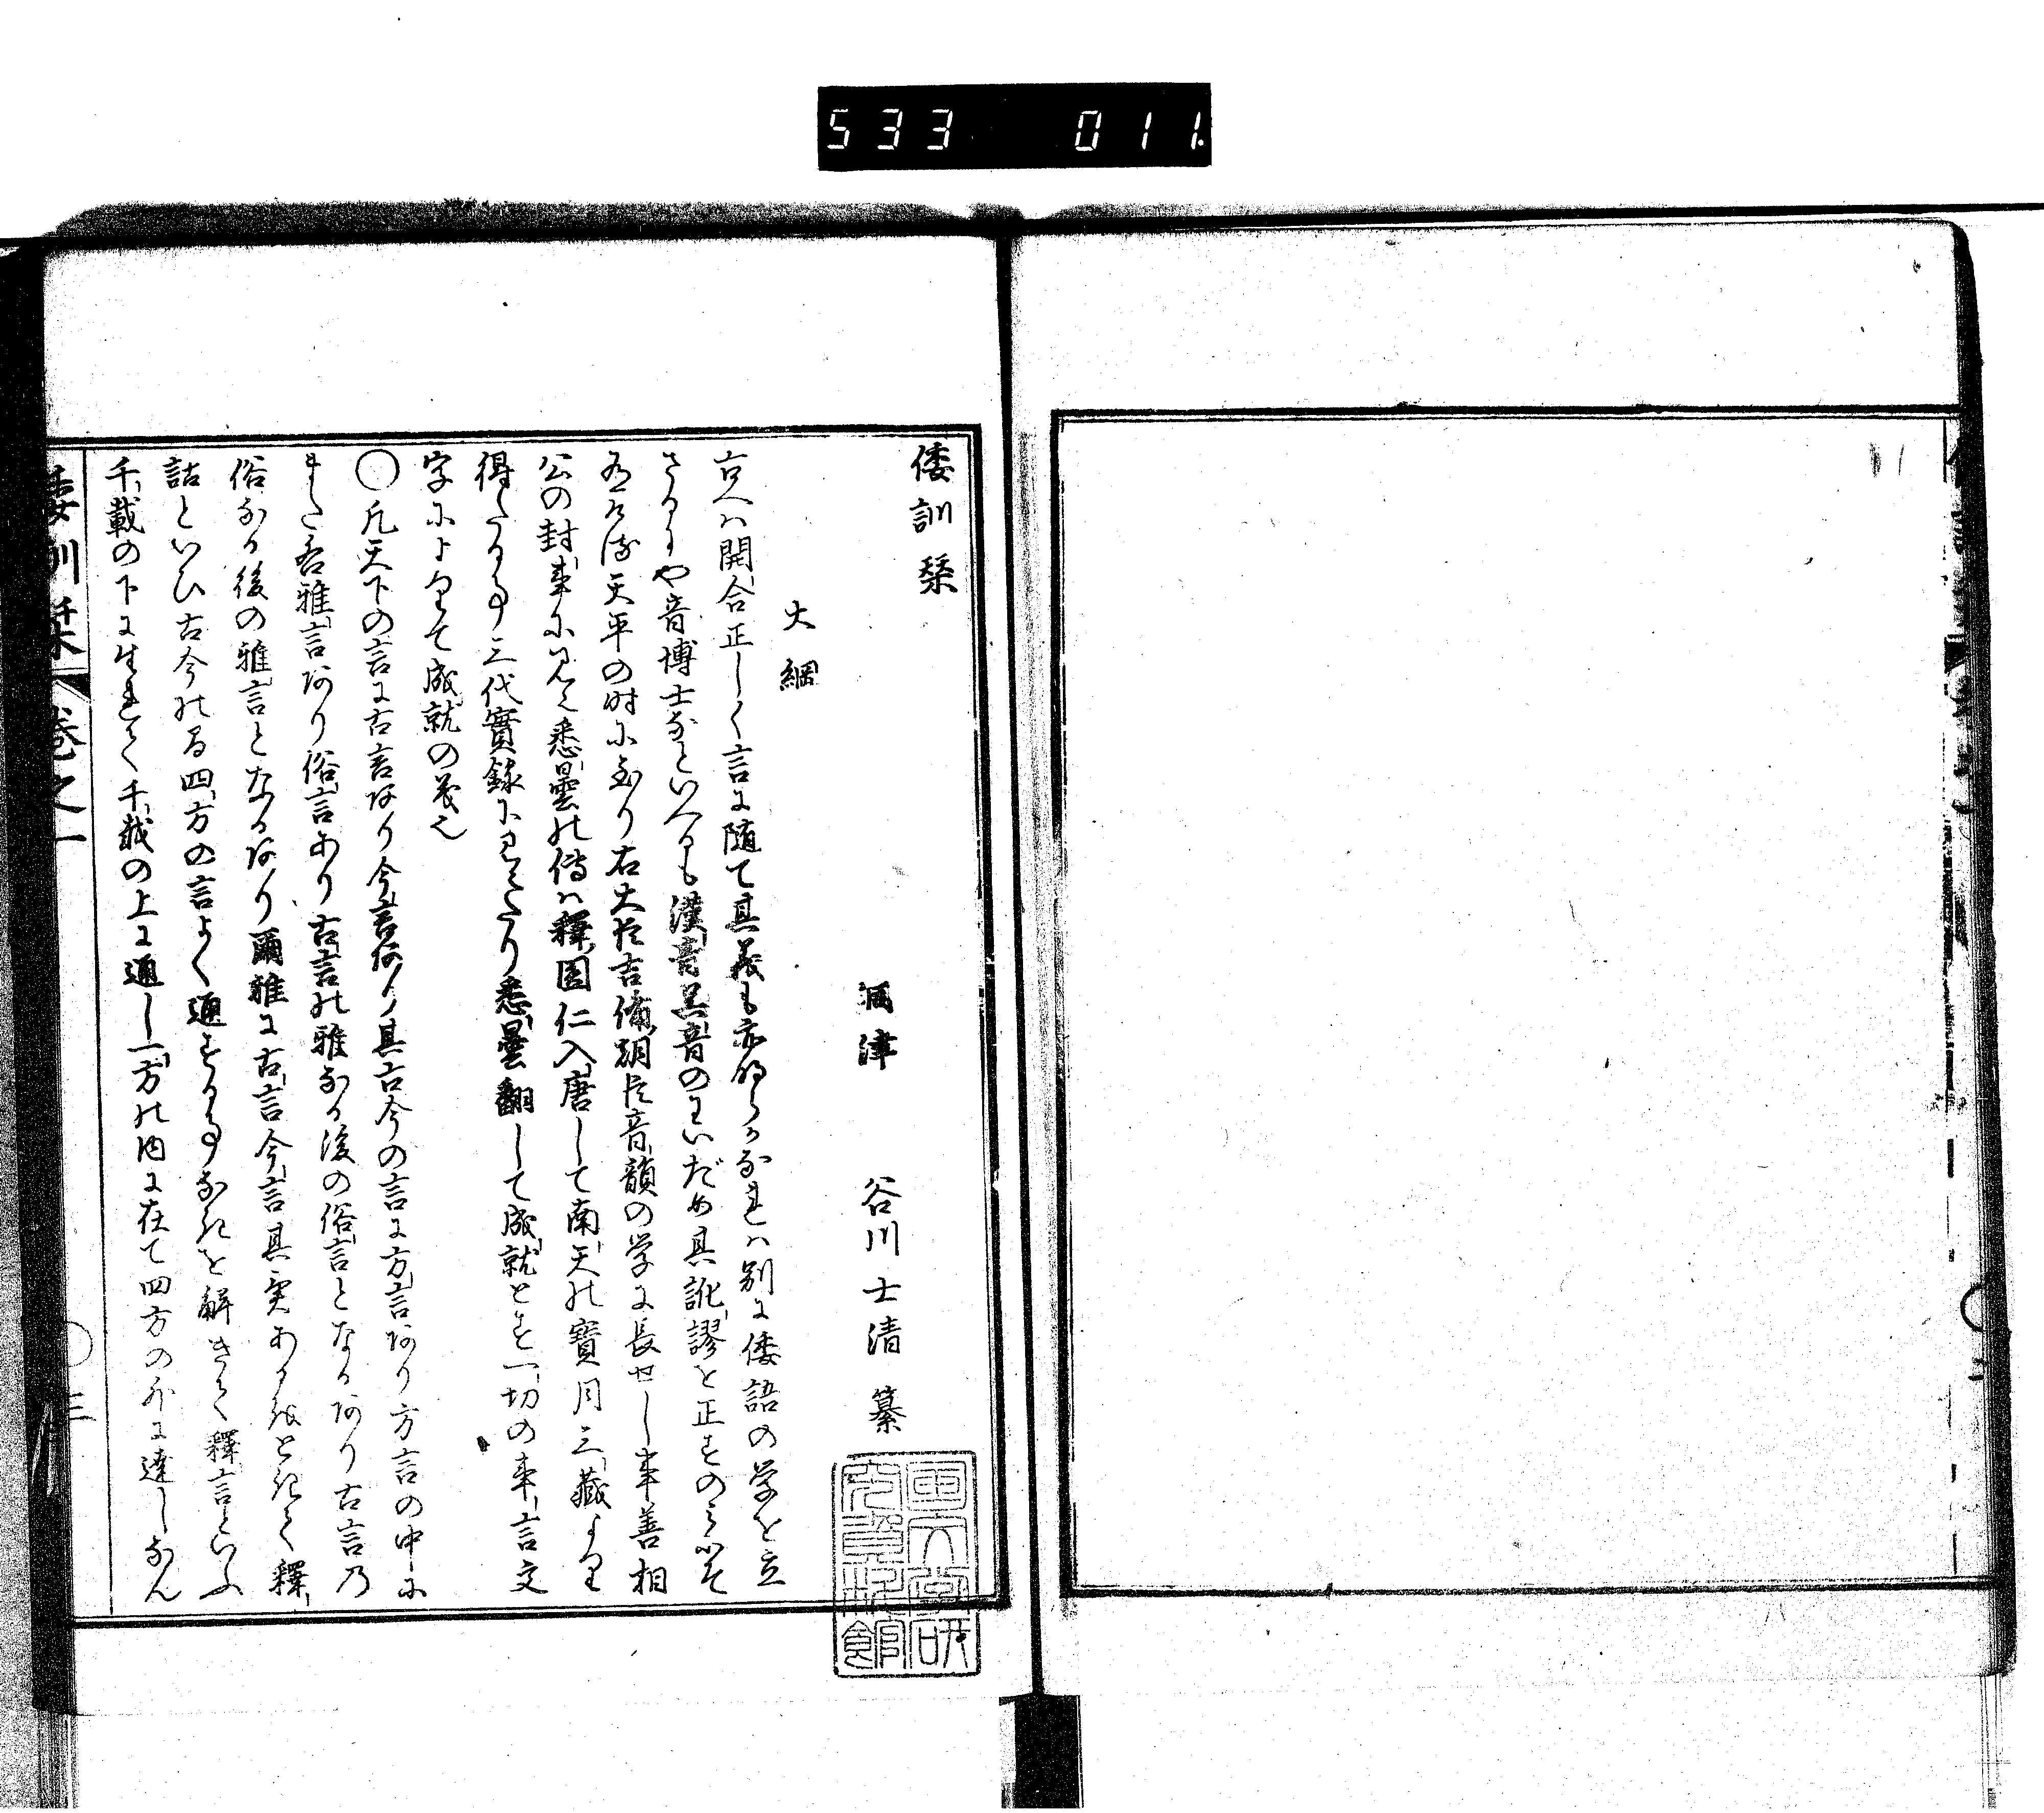 533 011
倭訓栞
洞津 谷川士清纂
大綱
古へハ開合正しく言に随て其義も亦明らかなれハ別に倭語の学を立
さるにや音博士なといへるも漢音呉音のわいだめ其訛謬を正すのみにそ
有ける天平の時に至り右大臣吉備朝臣音韻の学に長せし事善相
公の封事に見え悉曇の傳ハ釋圓仁入唐して南天の寶月三藏より
得たる事三代實録に見えたり悉曇翻して成就とす一切の事言文
字によりて成就の義也
〇凡天下の言に古言あり今言あり其古今の言に方言あり方言の中に
また吾雅言あり俗言あり古言の雅なる後の俗言となるあり古言乃
俗なる後の雅言となるあり爾雅に古言今言其実あるをときて釋
詁といひ古今のる四方の言よく通する事なきを解きて釋言といふ
千載の下に生れて千載の上に通し一方の内に在て四方の外に達しなん
倭訓栞 巻之一 三
国文学研究資料館